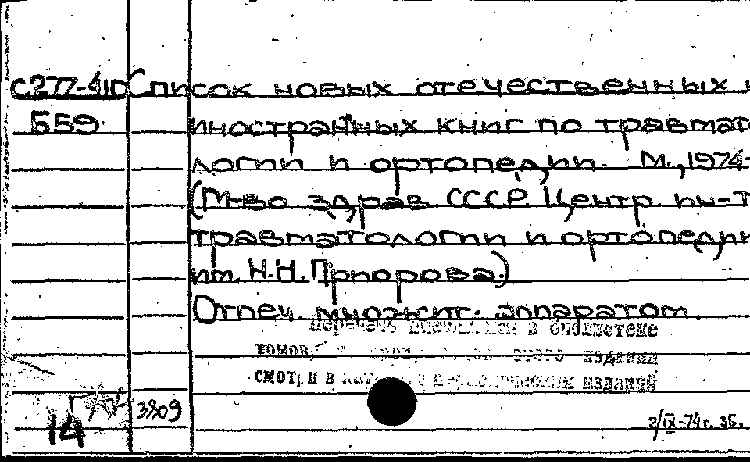 С277-410 Список новых отечественных и
559 иностранных книг по травмато-
логии и ортопедии. М., 1974-
(М-во здрав СССР. Центр. ин-т
травматологии и ортопедии
им. Н.Н. Приорова.)
Отпеч. множит. аппаратом.
Перечень в библиотеке
томов издания
смотри в изданий
14 3809
2/IX-74г. 36.